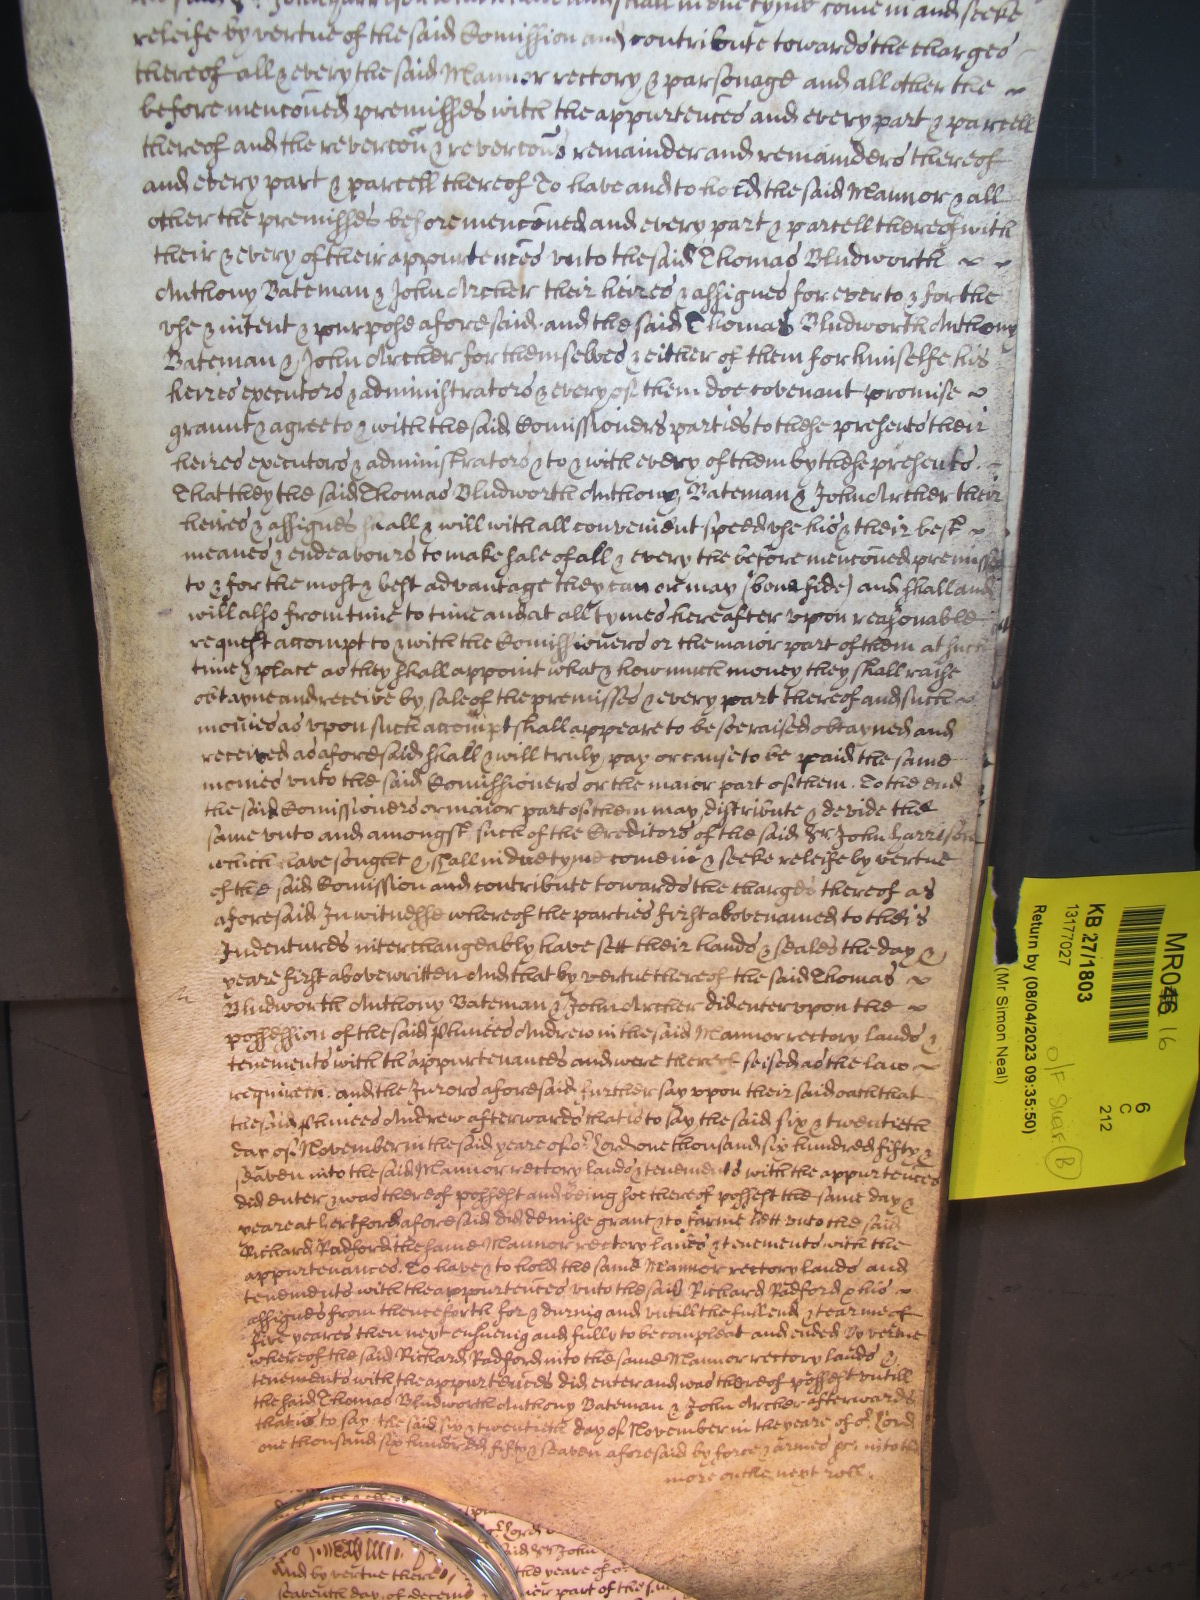 shall in due tyme come in and seeke
releife by vertue of the said Comission and contribute towards the charges
thereof all & every the said Mannor rectory & parsonage and all other the
before menconed premisses with the appurtences and every part & parcell
thereof and the revercon & revercons remainder and remainders thereof
and every part & parcell thereof To have and to hold the said Mannor & all
other the premisses before menconed and every part & parcell thereof with
their & every of their appurtences vnto the said Thomas Bludworth
Anthony Bateman & John Archer their heires & assignes for ever to & for the
vse & intent & purpose aforesaid. and the said Thomas Bludworth Anthony
Bateman & John Archer for themselves & either of them for himselfe his
heires executors & administrators & every of them doe covenant promise
graunt & agree to & with the said Comissioners parties to these presents their
heires executors & administrators & to & with every of them by these presents.
That they the said Thomas Bludworth Anthony Bateman & John Archer their
heires & assignes shall & will with all convenient speed vse his & their best
meanes & endeavours to make sale of all & every the before menconed premisses
to & for the most & best advantage they can or may (bona fide) and shall and
will also from time to time and at all tymes hereafter vpon reasonable
request accompt to & with the Comissioners or the maior part of them at such
time & place as they shall appoint what & how much money they shall raise
obtayne and receive by sale of the premisses & every part thereof and such
monies as vpon such accompt shall appeare to be soe raised obtayned and
received as aforesaid shall & will truly pay or cause to be paid the same
monies vnto the said Comissioners or the maior part of them. To the end
the said Comissioners or maior part of them may distribute & devide the
same vnto and amongst such of the Creditors of the said Sr John Harrison
which have sought & shall in due tyme come in & seeke releife by vertue
of the said Comission and contribute towards the charges thereof as
aforesaid In witnesse whereof the parties first abovenamed to theis
Indentures interchangeably have sett their hands & seales the day &
yeare first above written And that by vertue thereof the said Thomas
Bludworth Anthony Bateman & John Archer did enter vpon the
possession of the said Phinees Andrew in the said Mannor rectory lands &
tenements with th'appurtenances and were thereof seised as the law
requireth. and the Jurors aforesaid further say vpon their said oath that
the said Phinees Andrew afterwards that is to say the said six & twentieth
day of November in the said yeare of or Lord one thousand six hundred fifty &
seaven into the said Mannor rectory lands & tenements with the appurtences
did enter & was thereof possest and being soe thereof possest the same day &
yeare at Hertford aforesaid did demise grant & to farme lett vnto the said
Richard Radford the same Mannor rectory lands & tenements with the
appurtenances. To have & to hold the same Mannor rectory lands and
tenements with the appurtences vnto the said Richard Radford & his
assignes from thenceforth for & during and vntill the full end & tearme of
five yeares then next ensueing and fully to be compleat and ended By vertue
whereof the said Richard Radford into the same Mannor rectory lands &
tenements with the appurtences did enter and was thereof possest vntill
the said Thomas Bludworth Anthony Bateman & John Archer afterwards
that is to say the said six & twentieth day of November in the yeare of or Lord
one thousand six hundred fifty & seaven aforesaid by force & armes &c. into the
more on the next roll.
MR046 16
KB 27/1803
13177027
Return by (08/04/2023 09:35:50)
(Mr Simon Neal)
6
C
212
O/F
B
And by vertue thereof
seaventh day of decemb
Lord
said Sr John
the yeare of or
ior part of the